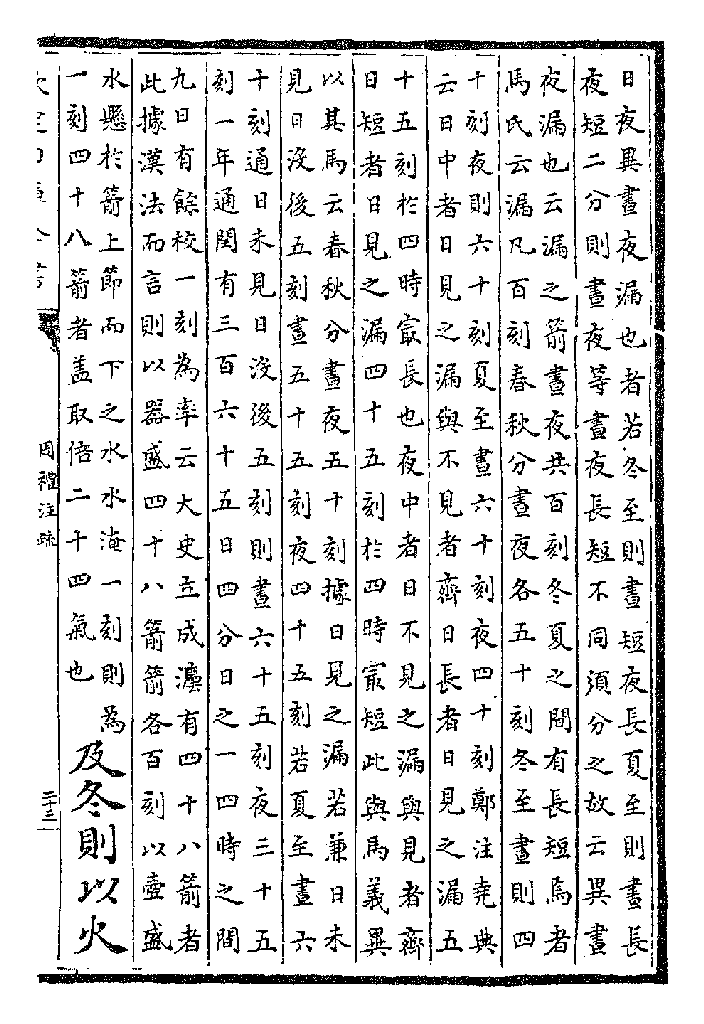 日夜異晝夜漏也者若冬至則晝短夜長夏至則晝長
夜短二分則晝夜等晝夜長短不同須分之故云異晝
夜漏也云漏之箭晝夜共百刻冬夏之間有長短焉者
馬氏云漏凡百刻春秋分晝夜各五十刻冬至晝則四
十刻夜則六十刻夏至晝六十刻夜四十刻鄭注堯典
云日中者日見之漏與不見者齊日長者日見之漏五
十五刻於四時㝡長也夜中者日不見之漏與見者齊
日短者日見之漏四十五刻於四時㝡短此與馬義異
以其馬云春秋分晝夜五十刻據日見之漏若兼日未
見日沒後五刻晝五十五刻夜四十五刻若夏至晝六
十刻通日未見日沒後五刻則晝六十五刻夜三十五
刻一年通閏有三百六十五日四分日之一四時之間
九日有餘校一刻為率云大史立成灋有四十八箭者
此據漢法而言則以器盛四十八箭箭各百刻以壺盛
水懸於箭上節而下之水水淹一刻則為
一刻四十八箭者盖取倍二十四氣也
及冬則以火
周禮注疏
二十三